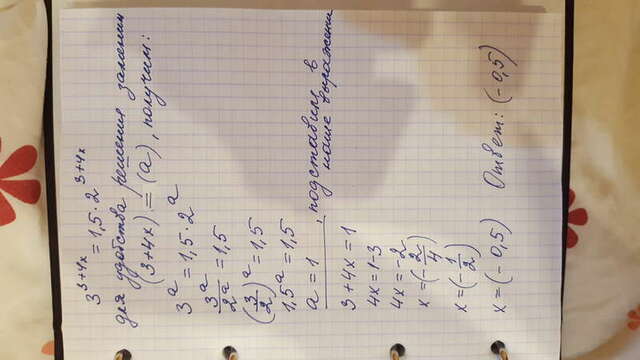 3^(3+4x) = 1,5 · 2^(3+4x)
для удобства решения заменим
(3+4x) = (a), получим:
3^a = 1,5 · 2^a
3^a/2^a = 1,5
(3/2)^a = 1,5
1,5^a = 1,5
a = 1, подставим в
наше выражени
3 + 4x = 1
4x = 1-3
4x = -2
x = (-2/4)
x = (-1/2)
x = (-0,5) Ответ: (-0,5)